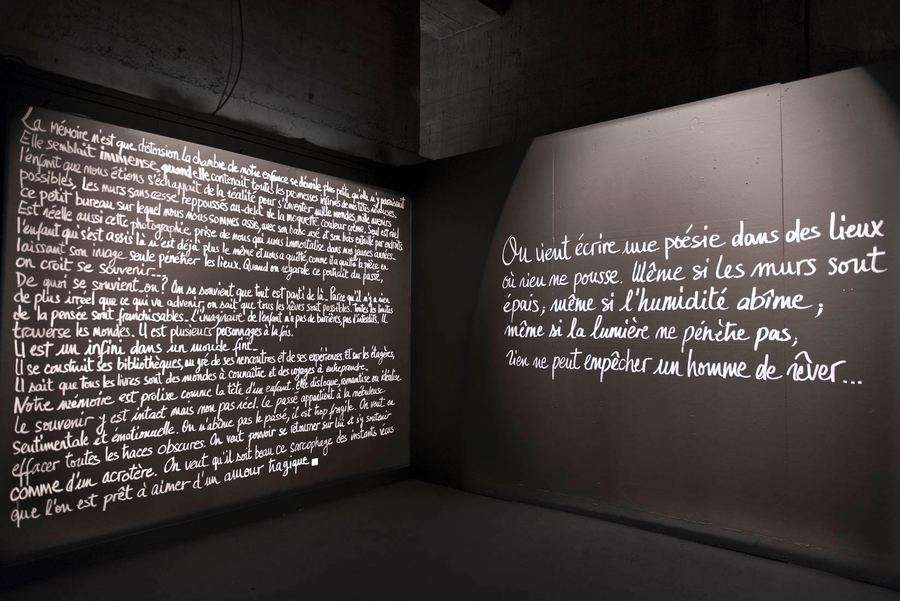 La mémoire n'est que distorsion. La chambre de notre enfance se dévoile plus petite qu'elle n'y paraissait
Elle semblait immense, quand elle contenait toutes les promesses infinies de nos têtes rêveuses.
l'enfant que nous étions s'échappait de la réalité pour s'inventer mille mondes, mille avenirs
possibles, les murs sans cesse repoussés au-delà de la moquette couleur crème. Seul est réel
ce petit bureau sur lequel nous nous sommes assis, avec son banc usé et son bois entaillé par endroits
Est réelle aussi cette photographie prise de nous qui nous immortalise dans nos jeunes années
l'enfant qui s'est assis là n'est déjà plus le même et nous a quitté comme il a quitté la pièce en
laissant son image seule pénétrer les lieux. Quand on regarde ce portrait du passé,
on croit se souvenir...
De quoi se souvient-on ? On se souvient que tout est parti de là. Parce qu'il n'y a rien
de plus irréel que ce qui va advenir, on sait que tous les rêves sont possibles, toutes les limites
de la pensée sont franchissables. L'imaginaire de l'enfant n'a pas de barrières, pas d'interdits. Il
traverse les mondes. Il est plusieurs personnages à la fois.
Il est un infini dans un monde fini.
Il se construit ses bibliothèques, au gré de ses rencontres et de ses expériences. Et sur les étagères,
Il sait que tous les livres sont des mondes à connaître et des voyages à entreprendre.
Notre mémoire est prolixe comme la tête d'un enfant. Elle dialogue, romantise ou idéalise
le souvenir y est intact mais non pas réel. Le passé appartient à la nébuleuse
sentimentale et émotionnelle. On n'abîme pas le passé, il est trop fragile. On veut en
effacer toutes les traces obscures. On veut pouvoir se retourner sur lui et s'y soutenir
comme d'un acrotère. On veut qu'il soit beau ce sarcophage des instants vécus
que l'on est prêt à aimer d'un amour tragique
On vient écrire une poésie dans des lieux
où rien ne pousse. Même si les murs sont
épais; même si l'humidité abîme;
même si la lumière ne pénètre pas,
rien ne peut empêcher un homme de rêver...